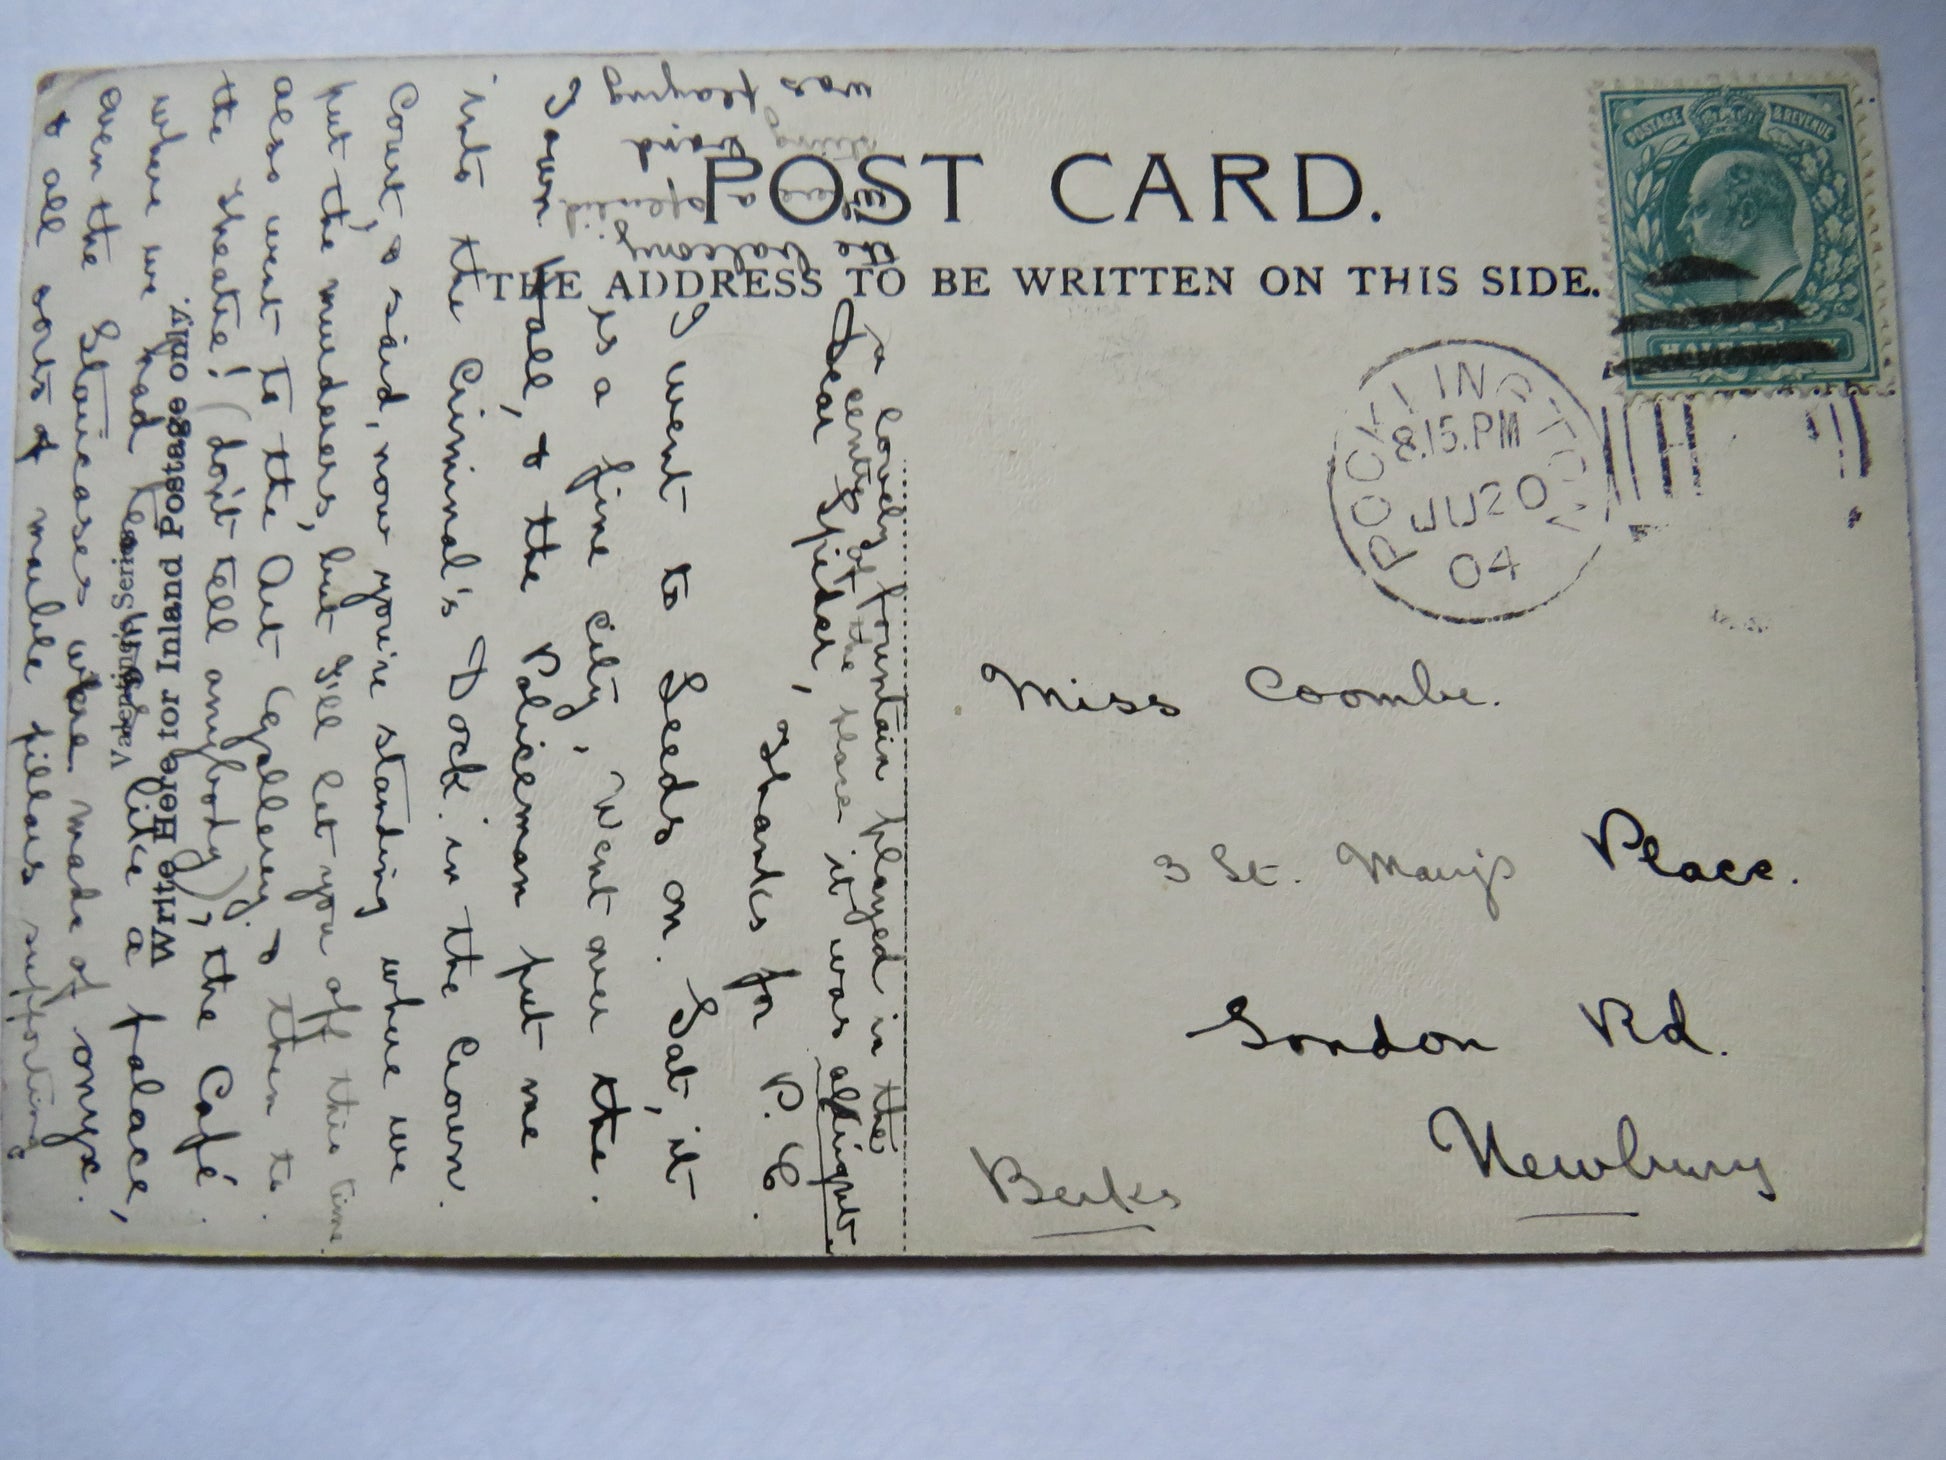 POST CARD.
THE ADDRESS TO BE WRITTEN ON THIS SIDE.
POSTAGE & REVENUE
HALFPENNY
POCKLINGTON
8.15.PM
JU 20
04
Miss Coombe.
3 St. Mary's Place.
London Rd.
Newbury
Berks
Write Here for Inland Postage only.
Valentine's Series
Dear Spider,
Thanks for P. C.
I went to Leeds on. Sat, it
is a fine city, Went over the
Town Hall, & the Policeman put me
into the Criminal's Dock in the Crown
Court, & said, now you're standing where we
put the murderers, but I'll let you off this time.
also went to the Art Gallery & then to
the Theatre! (don't tell anybody), the Café
where we had tea was like a palace,
even the Staircases were made of onyx.
& all sorts of marble pillars supporting
the balcony
where a splendid
string band
was playing
a lovely fountain played in the
centre of the place it was alright